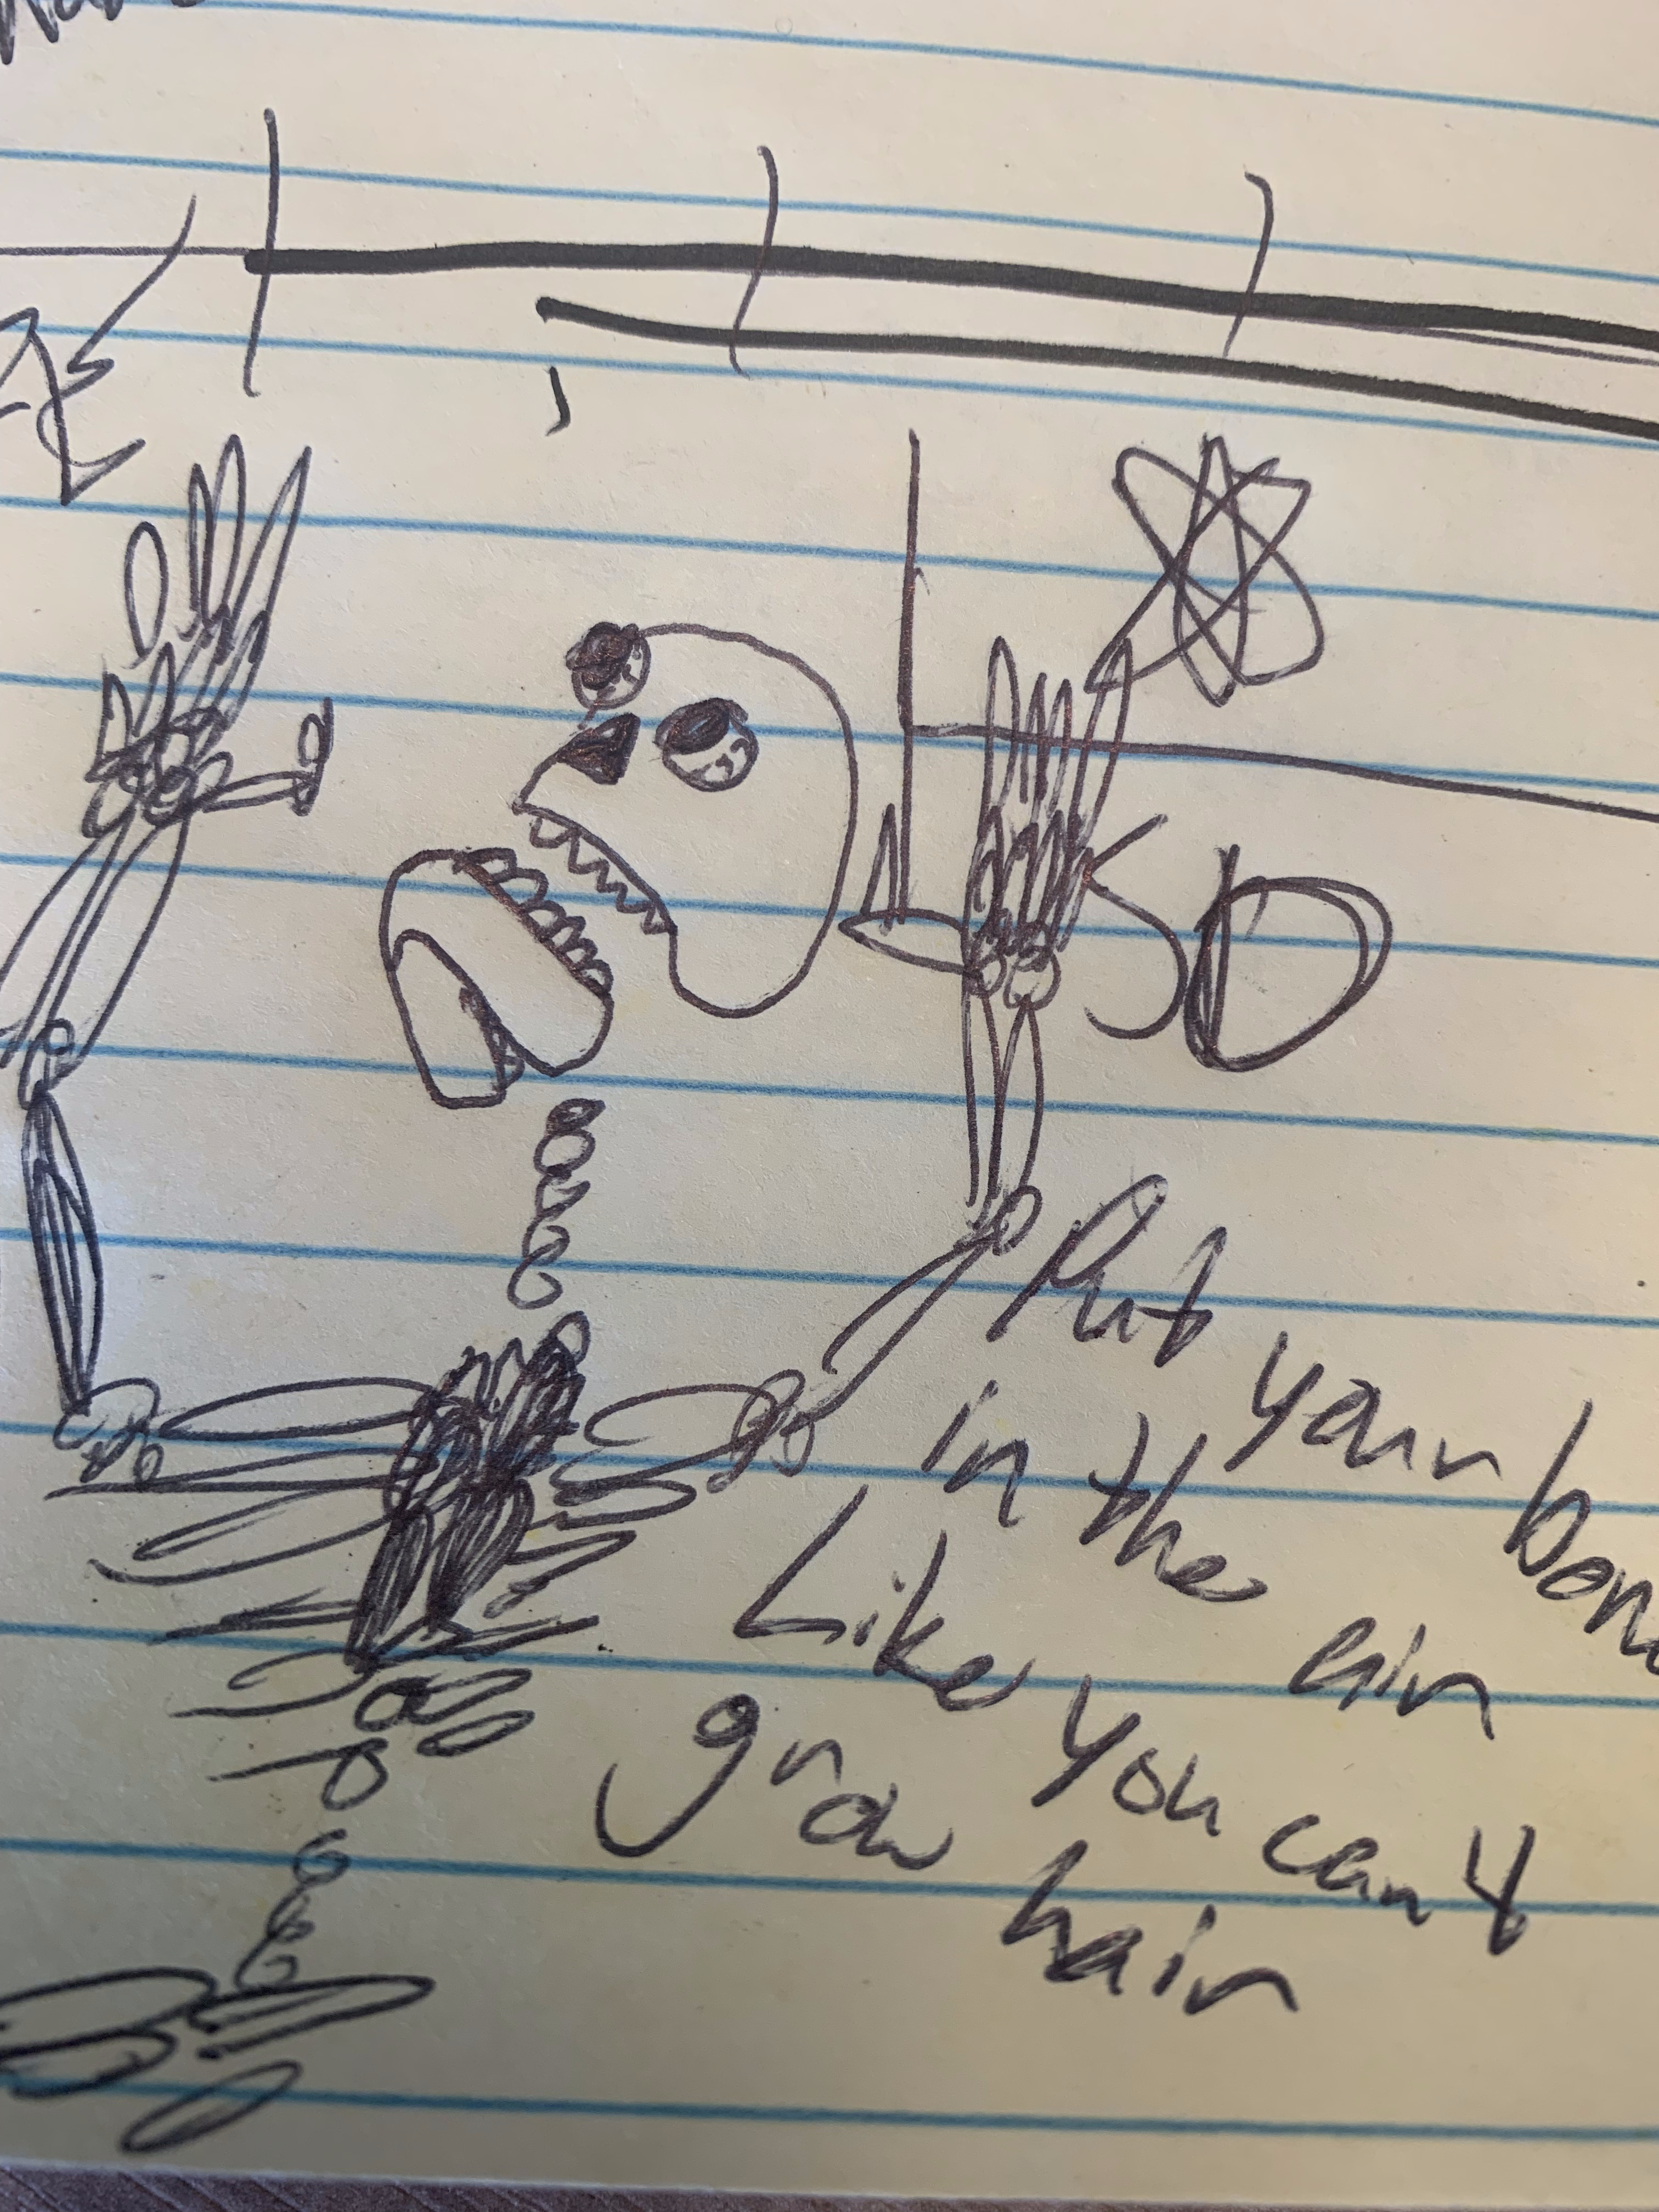 LSD
Put your bon
in the air
Like you can't
grow hair